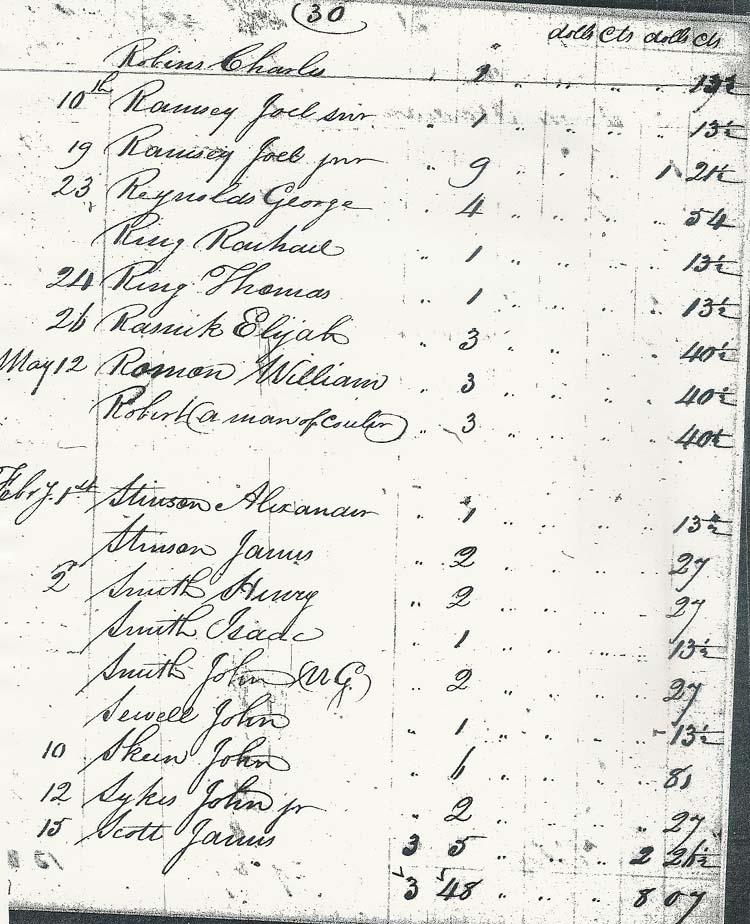 (30)
dolls Cts dolls Cts
Robins Charles " 1 " " " " 13½
10th Ramsey Joel snr " 1 " " " " 13½
19 Ramsey Joel jnr " 9 " " " 1 21½
23 Reynolds George " 4 " " " " 54
King Rachael " 1 " " " " 13½
24 King Thomas " 1 " " " " 13½
26 Rasnik Elijah " 3 " " " " 40½
May 12 Romon William " 3 " " " " 40½
Robert (a man of couler) " 3 " " " " 40½
Febry. 1st Stinson Alexander " 1 " " " " 13½
Stinson James " 2 " " " " 27
2d Smith Henry " 2 " " " " 27
Smith Isaac " 1 " " " " 13½
Smith John 2 " " " " 27
Sewell John " 1 " " " " 13½
10 Skeen John " 6 " " " " 81
12 Sykes John jr " 2 " " " " 27
15 Scott James 3 5 " " " 2 26½
3 48 " " " 8 07